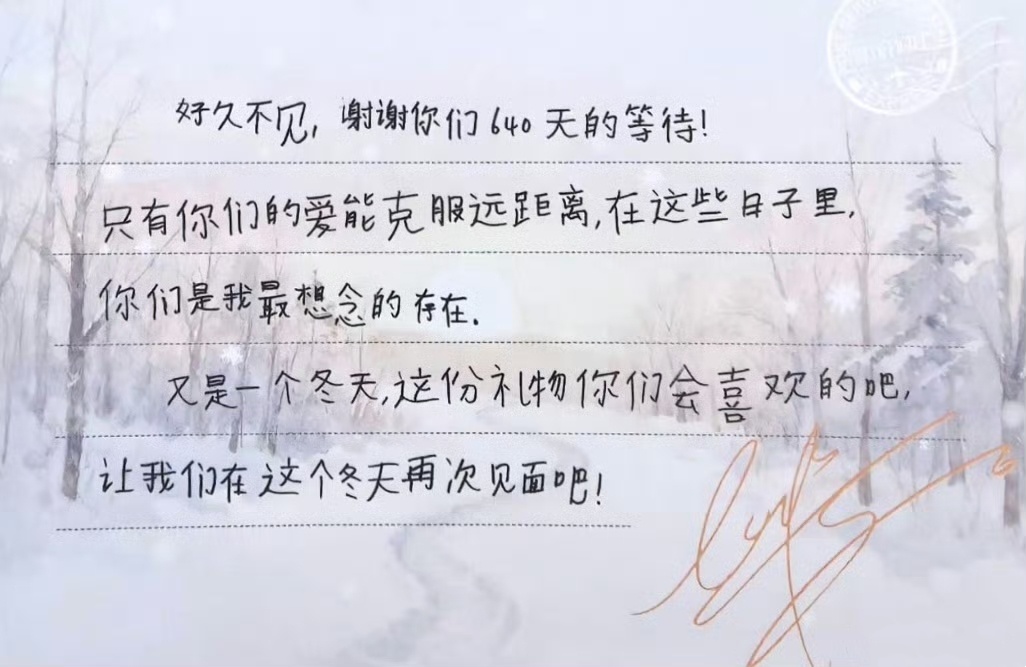 好久不见，谢谢你们640天的等待！
只有你们的爱能克服远距离，在这些日子里，
你们是我最想念的存在．
又是一个冬天，这份礼物你们会喜欢的吧，
让我们在这个冬天再次见面吧！